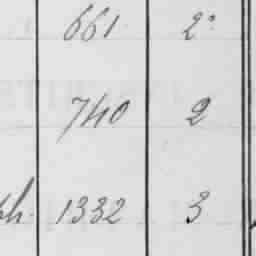 661 2.
740 2
ph. 1332 3